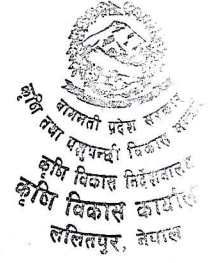 बागमती प्रदेश सरकार
कृषि तथा पशुपन्छी विकास
कृषि विकास निर्देशनालय
कृषि विकास कार्यालय
ललितपुर, नेपाल